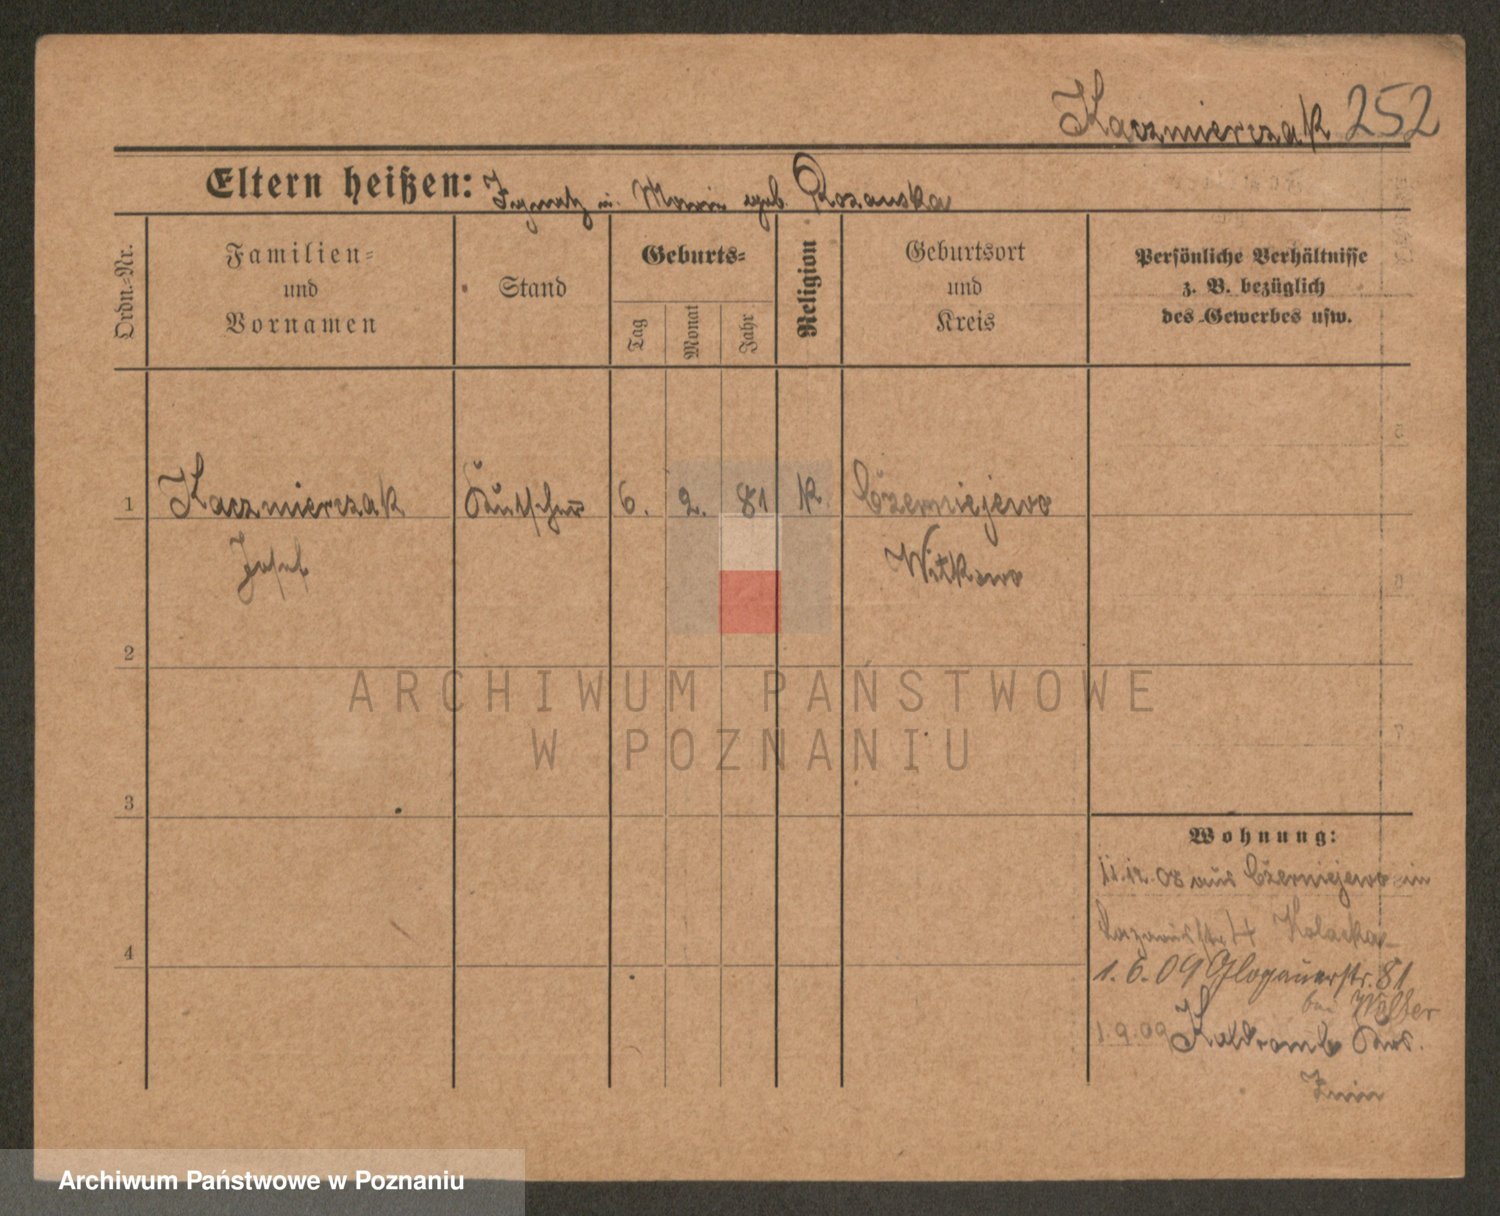 Kaczmierczak 252
Eltern heißen: Ignatz u. Maria geb. Rozanska
Ordn.-Nr.
Familien-
und
Vornamen
Stand
Geburts-
Tag
Monat
Jahr
Religion
Geburtsort
und
Kreis
Persönliche Verhältnisse
z. B. bezüglich
des Gewerbes usw.
1 Kaczmierczak Kutscher 6. 2. 81 k. Czerniejewo
Josef Witkowo
2
3
4
Wohnung:
11.12.08 aus Czerniejewo in
Lazarusstr. 4
1.6.09 Glogauerstr. 81
bei Weber
1.9.09 Krs.
Znin
ARCHIWUM PAŃSTWOWE
W POZNANIU
Archiwum Państwowe w Poznaniu